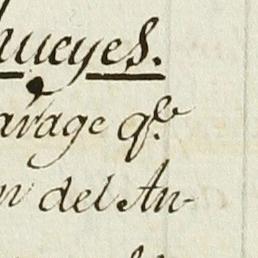 hueyes.
arage qe.
n del An-